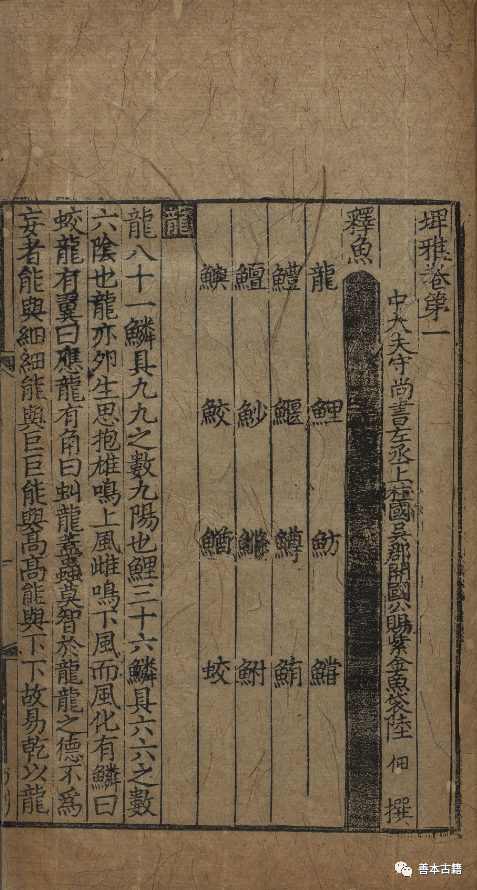 埤雅卷第一
中大夫守尚書左丞上柱國吳郡開國公賜紫金魚袋陸佃撰
釋魚
龍 鯉 魴 鱨
鱧 鰋 鱒 鮪
鱣 魦 鮒
鱮 鮫 鰌 蛟
龍
龍八十一鱗具九九之數九陽也鯉三十六鱗具六六之數
六陰也龍亦卵生思抱雄鳴上風雌鳴下風而風化有鱗曰
蛟龍有翼曰應龍有角曰虬龍蓋蟲莫智於龍龍之德不為
妄者能與細細能與巨巨能與髙髙能與下下故易乾以龍
善本古籍